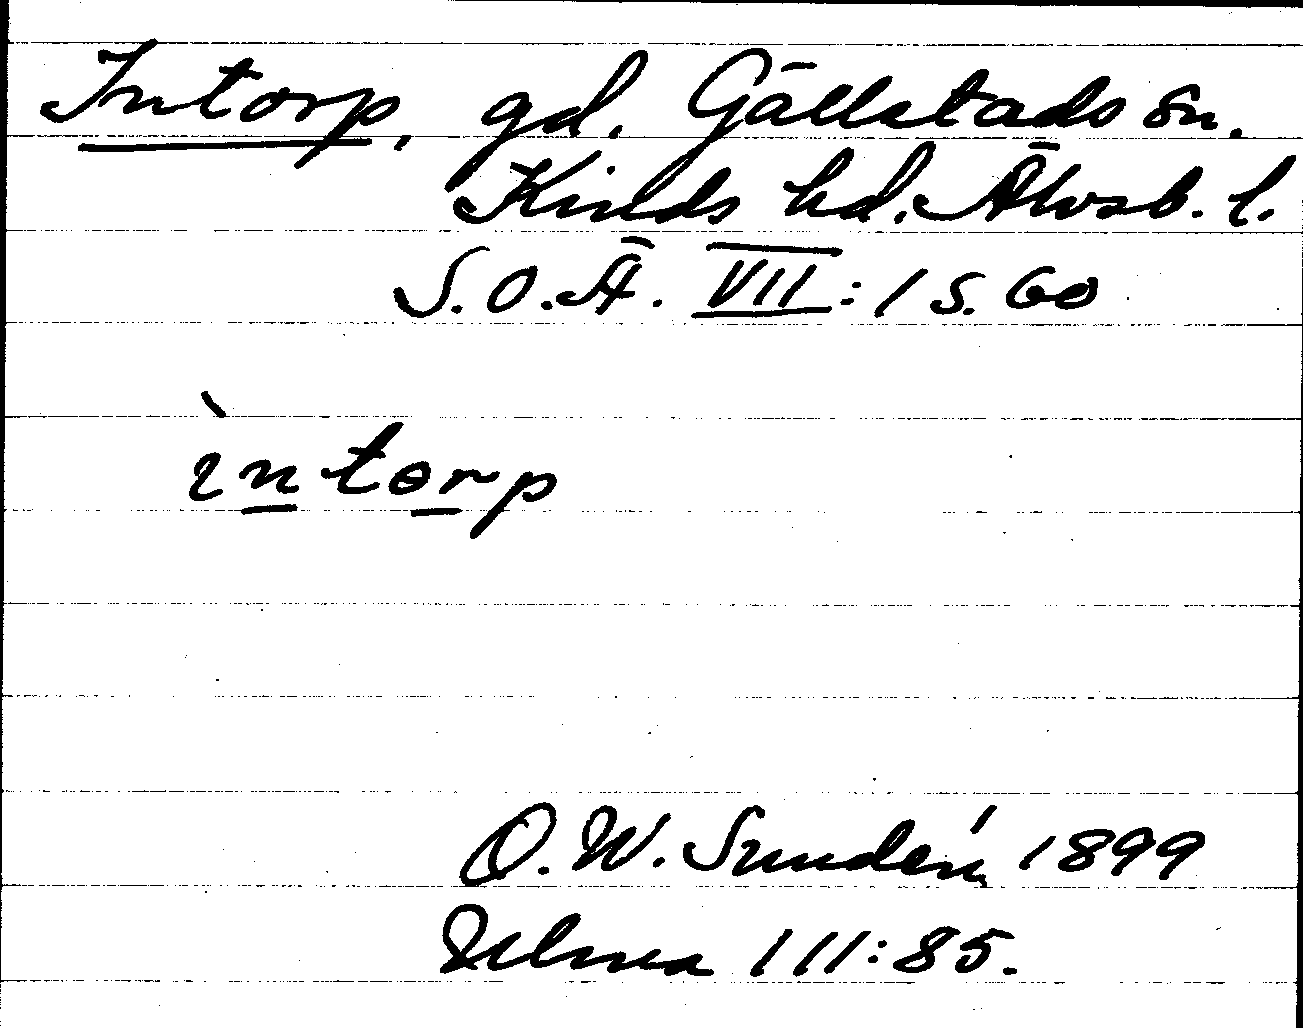 Intorp, gd. Gällstads sn.
Kinds hd. Älvsb. l.
S.O.Ä. VII: 1 s. 60
ìntorp
O. W. Sundén 1899
111:85.